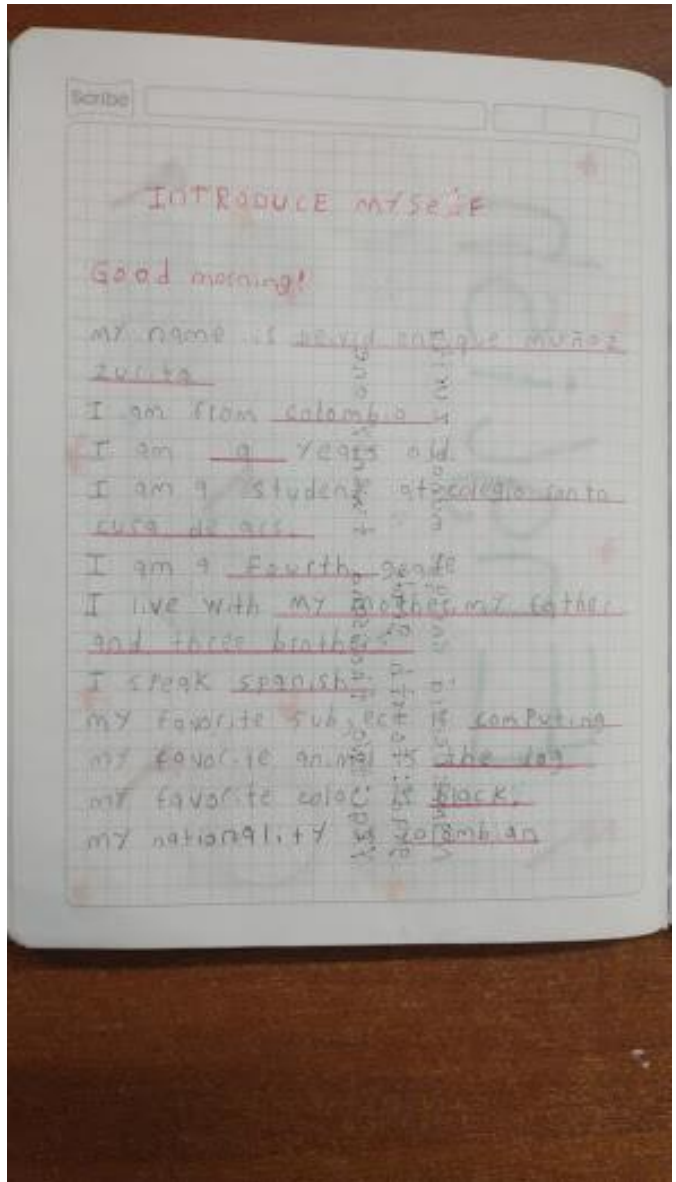 Scribe
INTRODUCE MYSELF
Good morning!
MY name is enrique muñoz
zurita
I am from colombia
I am 9 Years old.
I am a student at colegio santo
cura de ars.
I am a Fourth grade
I live with MY mother, MY father
and three brothers
I speak spanish
MY favorite subject is computing
MY favorite animal is the dog
MY favorite color is Black.
MY nationality is colombian